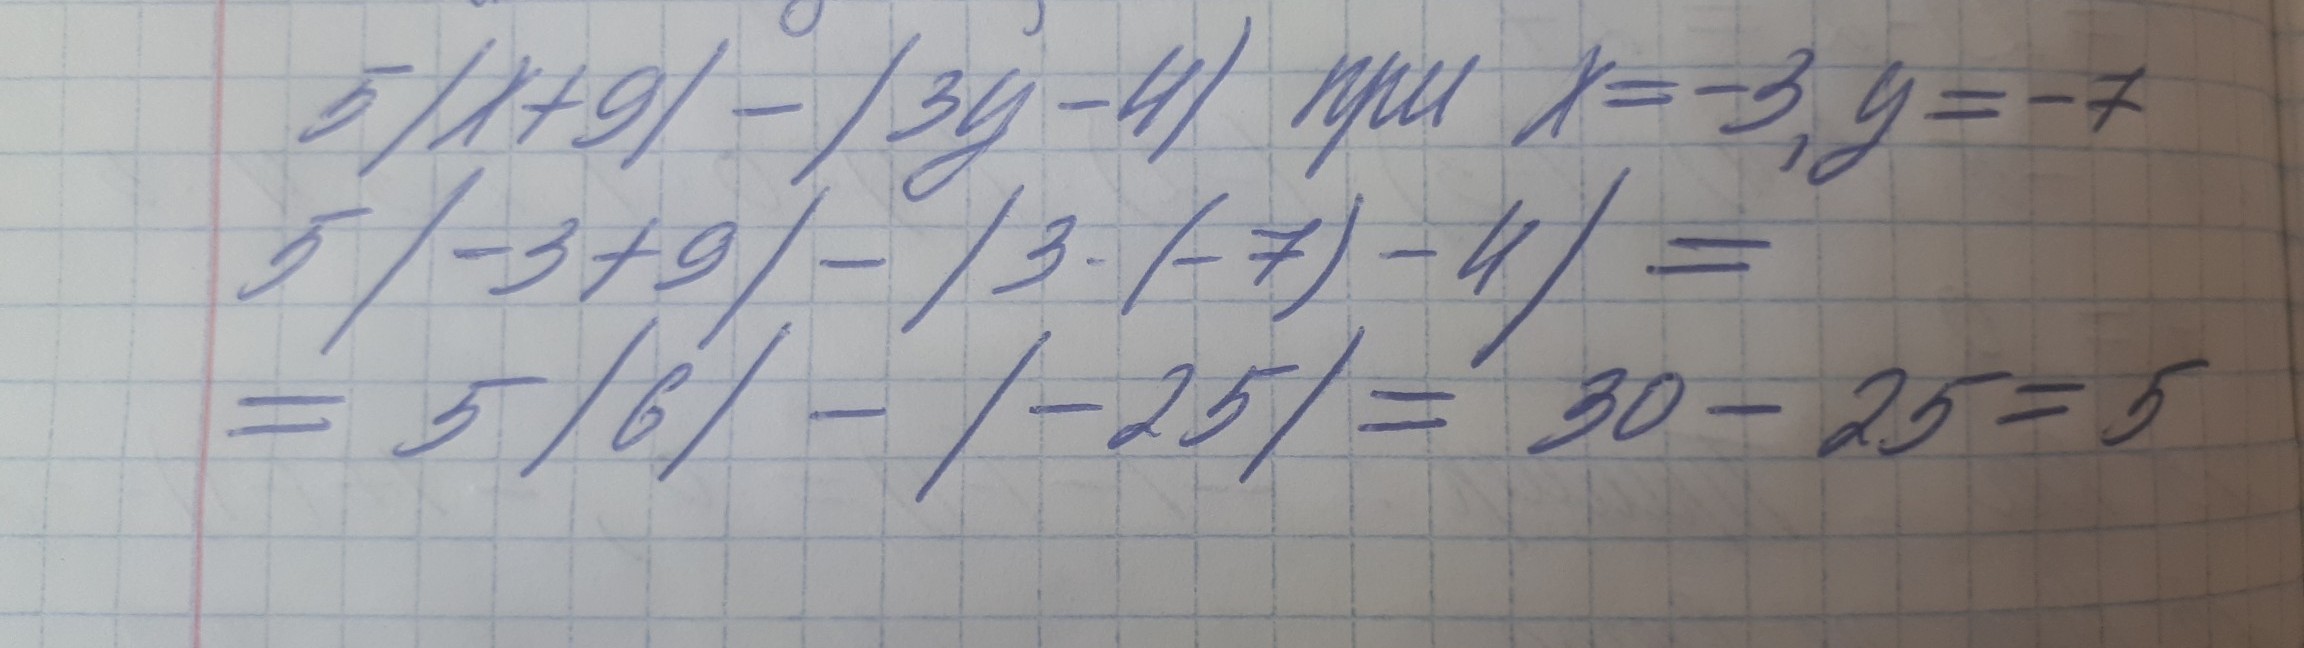 5|x+9| - |3y-4| при x=-3, y=-7
5|-3+9| - |3·(-7)-4| =
= 5|6| - |-25| = 30 - 25 = 5